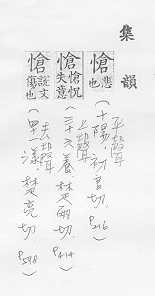 集韻
愴 悲也
平聲
（十陽・初良切 P.216）
愴 愴怳失意
上聲
（三十六養・楚兩切 P.414）
愴 說文傷也
去聲
（四十一漾・楚亮切 P.598）